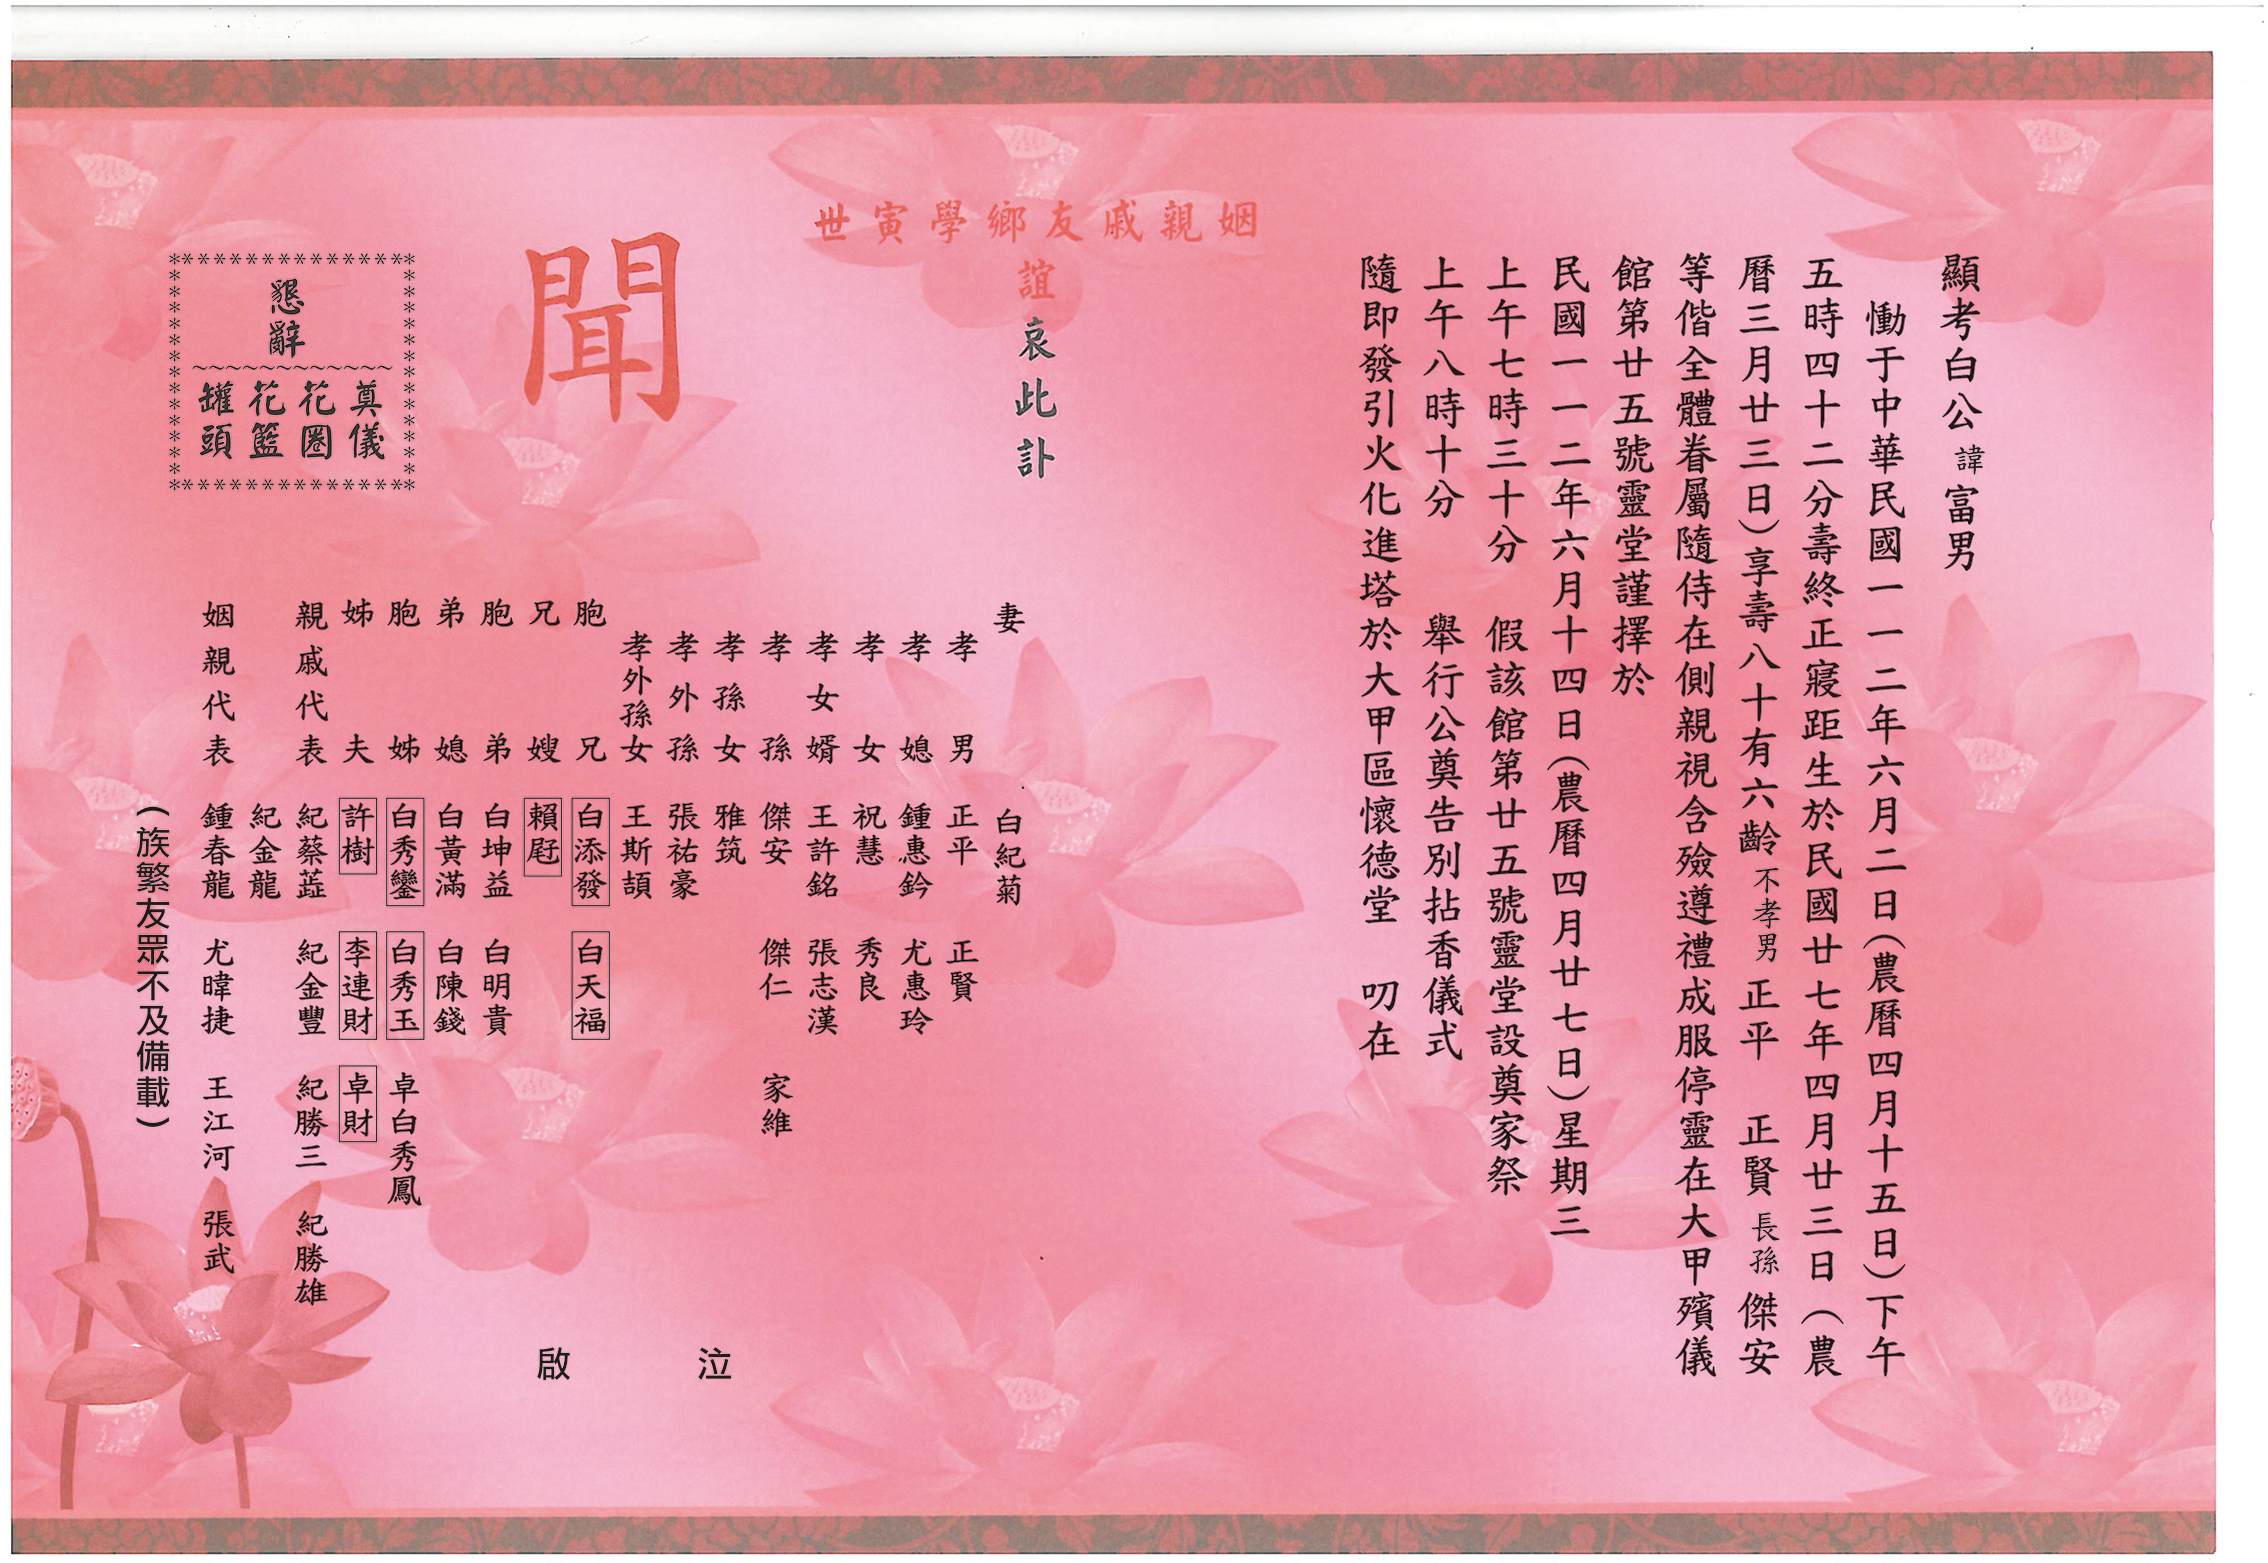 顯考白公諱富男
慟于中華民國一一二年六月二日(農曆四月十五日)下午
五時四十二分壽終正寢距生於民國廿七年四月廿三日(農
曆三月廿三日)享壽八十有六齡不孝男正平 正賢長孫傑安
等偕全體眷屬隨侍在側親視含殮遵禮成服停靈在大甲殯儀
館第廿五號靈堂謹擇於
民國一一二年六月十四日(農曆四月廿七日)星期三
上午七時三十分 假該館第廿五號靈堂設奠家祭
上午八時十分 舉行公奠告別拈香儀式
隨即發引火化進塔於大甲區懷德堂 叨在
姻親戚友鄉學寅世
誼哀此訃
聞
妻 白紀菊
孝男 正平 正賢
孝媳 鍾惠鈐 尤惠玲
孝女 祝慧 秀良
孝女婿 王許銘 張志漢
孝孫 傑安 傑仁 家維
孝孫女 雅筑
孝外孫 張祐豪
孝外孫女 王斯頡
胞兄 白添發 白天福
兄嫂 賴
胞弟 白坤益 白明貴
弟媳 白黃滿 白陳錢
胞姊 白秀鑾 白秀玉 卓白秀鳳
姊夫 許樹 李連財 卓財
親戚代表 紀蔡 紀金豐 紀勝三 紀勝雄
紀金龍
姻親代表 鍾春龍 尤暐捷 王江河 張武
(族繁友眾不及備載)
泣啟
懇辭
奠儀
花圈
花籃
罐頭